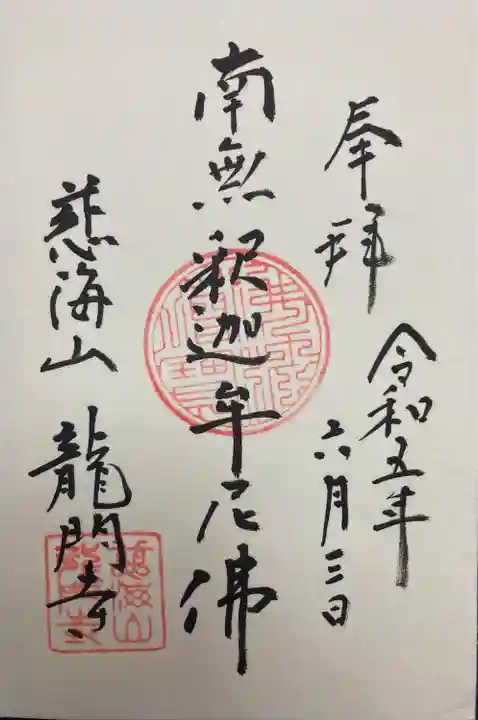 奉拝
令和五年
六月三日
南無釈迦牟尼佛
慈海山 龍門寺